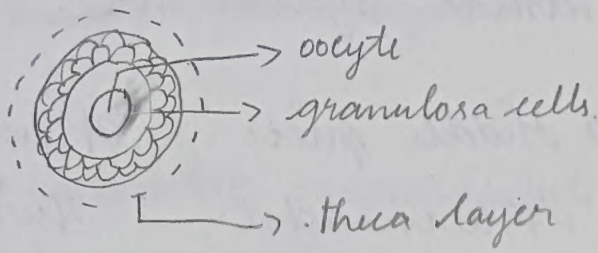 oocyte
granulosa cells.
theca layer